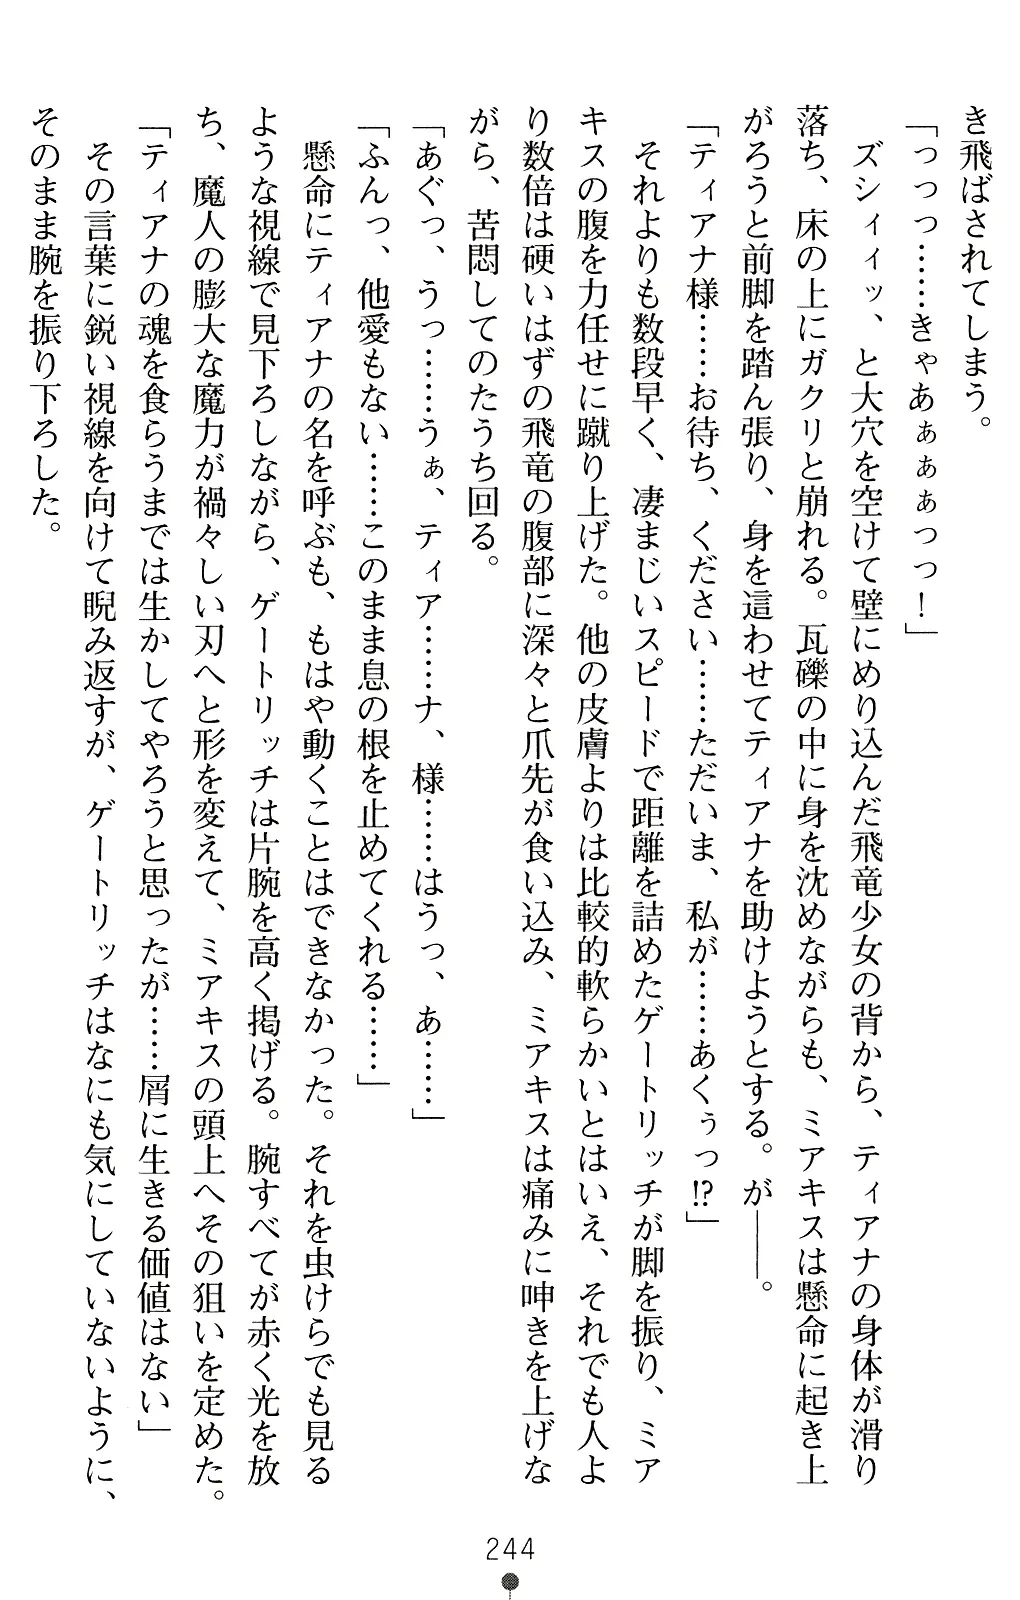 き飛ばされてしまう。
「っっっ……きゃあぁぁぁっっ！」
　ズシィィッ、と大穴を空けて壁にめり込んだ飛竜少女の背から、ティアナの身体が滑り
落ち、床の上にガクリと崩れる。瓦礫の中に身を沈めながらも、ミアキスは懸命に起き上
がろうと前脚を踏ん張り、身を這わせてティアナを助けようとする。が――。
「ティアナ様……お待ち、ください……ただいま、私が……あくぅっ!?」
　それよりも数段早く、凄まじいスピードで距離を詰めたゲートリッチが脚を振り、ミア
キスの腹を力任せに蹴り上げた。他の皮膚よりは比較的軟らかいとはいえ、それでも人よ
り数倍は硬いはずの飛竜の腹部に深々と爪先が食い込み、ミアキスは痛みに呻きを上げな
がら、苦悶してのたうち回る。
「あぐっ、うっ……うぁ、ティア……ナ、様……はうっ、あ……」
「ふんっ、他愛もない……このまま息の根を止めてくれる……」
　懸命にティアナの名を呼ぶも、もはや動くことはできなかった。それを虫けらでも見る
ような視線で見下ろしながら、ゲートリッチは片腕を高く掲げる。腕すべてが赤く光を放
ち、魔人の膨大な魔力が禍々しい刃へと形を変えて、ミアキスの頭上へその狙いを定めた。
「ティアナの魂を食らうまでは生かしてやろうと思ったが……屑に生きる価値はない」
　その言葉に鋭い視線を向けて睨み返すが、ゲートリッチはなにも気にしていないように、
そのまま腕を振り下ろした。
244